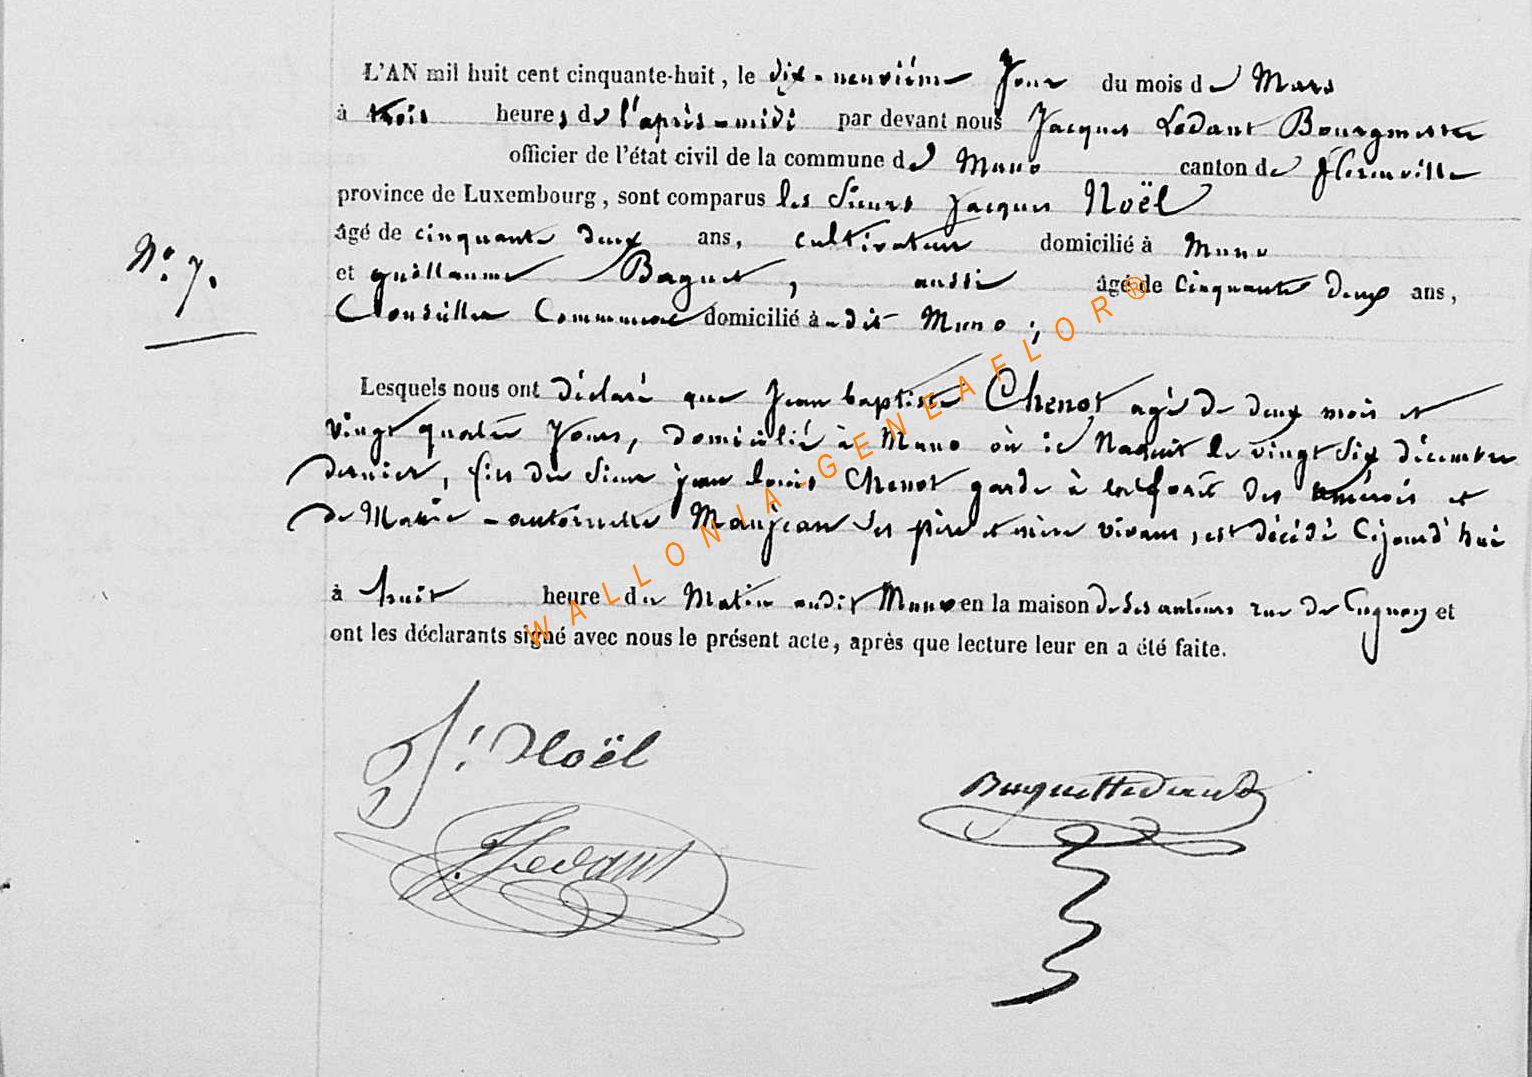 L'AN mil huit cent cinquante-huit, le dix-neuvième Jour du mois de Mars
à trois heures de l'après-midi par devant nous Jacques Ledant Bourgmestre
officier de l'état civil de la commune de Muno canton de Florenville
province de Luxembourg, sont comparus les Sieurs Jacques Noël
âgé de cinquante deux ans, cultivateur domicilié à Muno
N° 7.
et guillaume Baguet, aussi âgé de cinquante deux ans,
Conseiller Communal domicilié à udit Muno ;
Lesquels nous ont déclaré que Jean baptiste Chenot agé de deux mois et
vingt quatre Jours, domicilié à Muno où il Naquit le vingt six décembre
dernier, fils du Sieur jean louis Chenot garde à la forêt des et
de Marie-antoinette Manjean ses père et mère vivans, est décédé cejourd'hui
à huit heure du Matin audit Muno en la maison de ses auteurs rue de et
ont les déclarants signé avec nous le présent acte, après que lecture leur en a été faite.
J. Noël
J. Ledant
WALLONIA-GENEAFLOR®